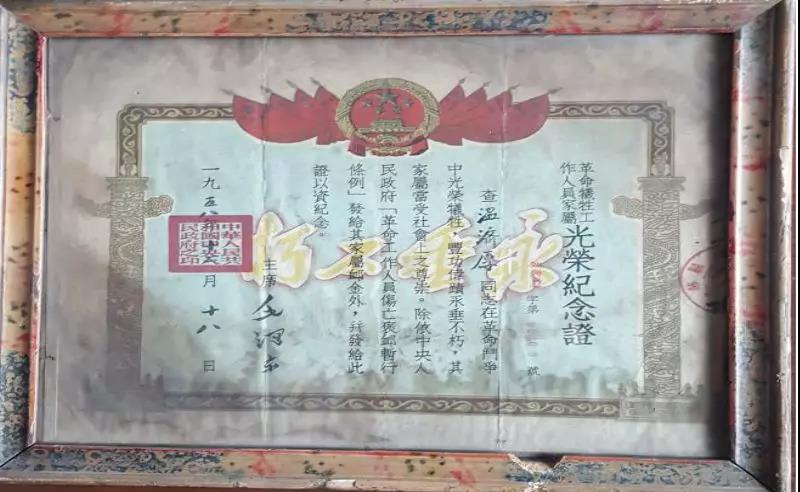 革命犧牲工
作人員家屬
光榮紀念證
字第
號
查溫濟厚同志在革命鬥爭
中光榮犧牲，豐功偉績永垂不朽，其
家屬當受社會上之尊崇。除依中央人
民政府「革命工作人員傷亡褒卹暫行
條例」發給其家屬卹金外，并發給此
證以資紀念。
主席 毛澤東
一九五八年 月十八日
中華人民共
和國中央人
民政府之印
永垂不朽